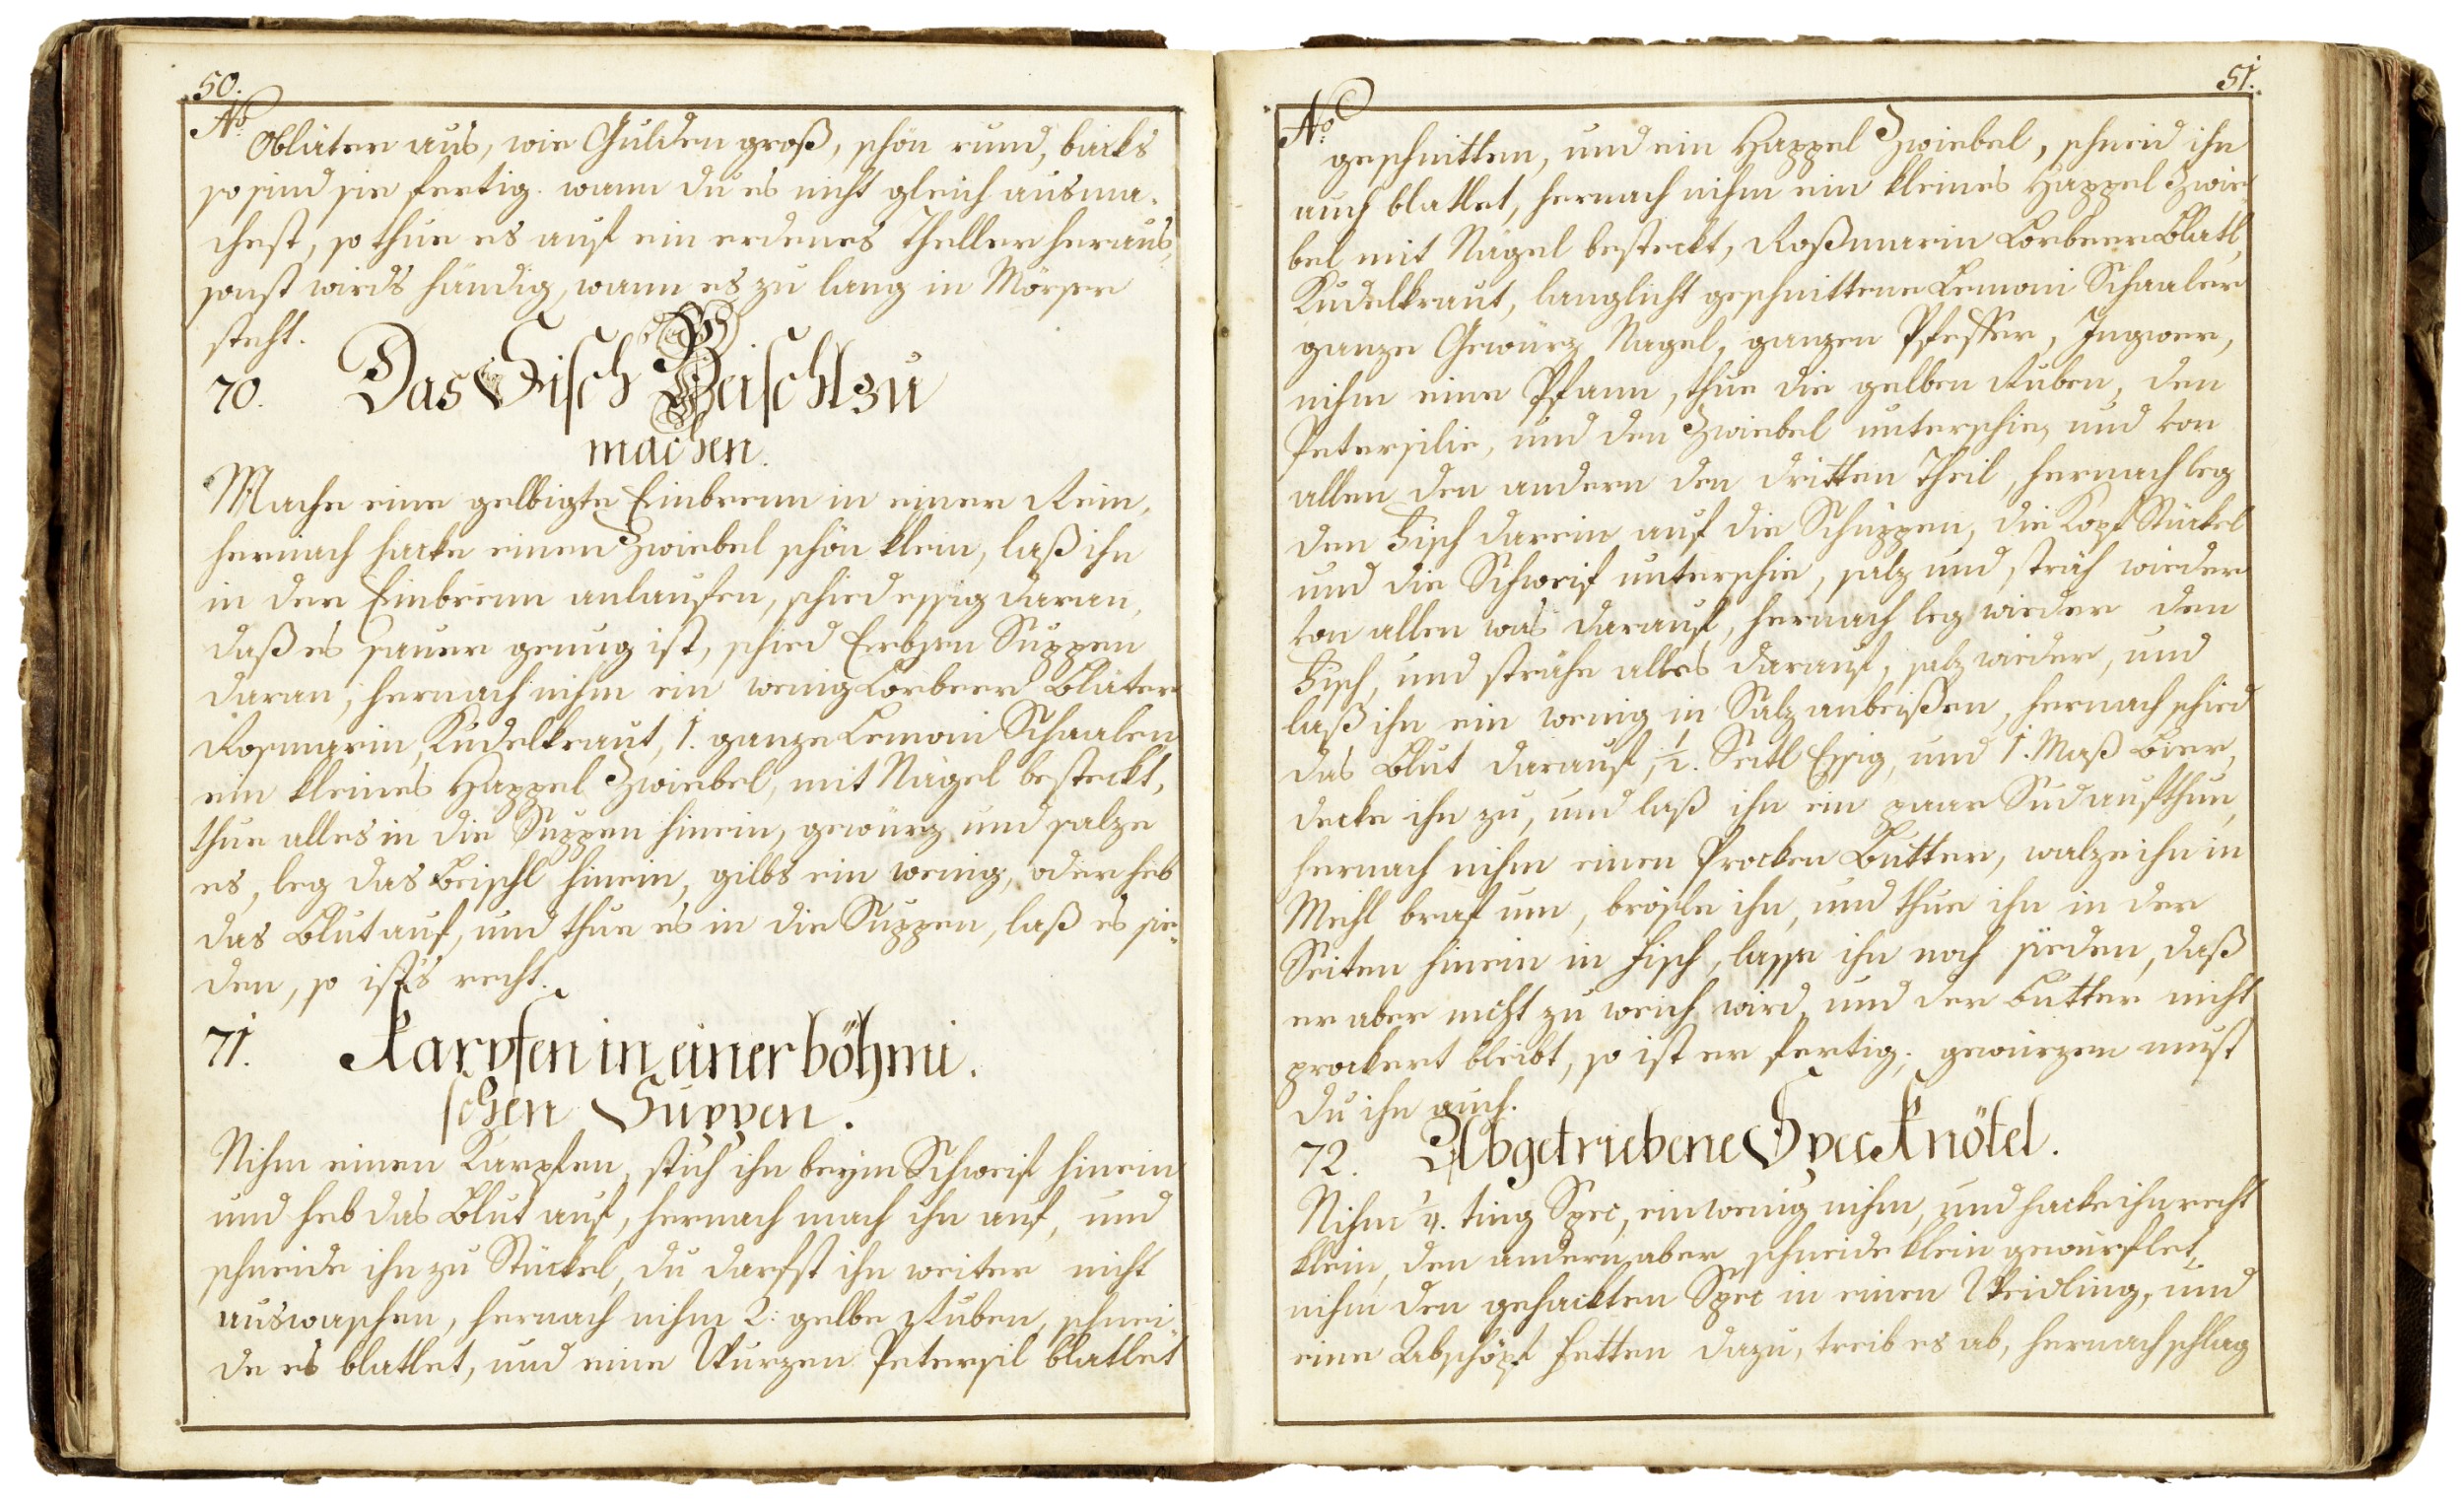 50.
No
Oblaten aus, wie Gulden groß, schön rund, backs
so sind sie fertig. wann du es nicht gleich ausma-
chest, so thue es auf ein erdenes Theller heraus,
sonst wirds händig, wann es zu lang in Mörser
steht.
70. Das Fisch Beischl zu
machen.
Mache eine gelbigte Einbrenn in einer Rein,
hernach hacke einen Zwiebel schön klein, laß ihn
in der Einbrenn anlaufen, schied essig daran,
daß es sauer genug ist, schied Erbsen Suppen
daran, hernach nihm ein wenig Lorbeer Blater
Rosmarin, Kudelkraut, 1. ganze Lemoni Schaalen
ein kleines Happel Zwiebel, mit Nägel besteckt,
thue alles in die Suppen hinein, gewürz und salze
es, leg das Beischl hinein, gilbs ein wenig, oder heb
das Blut auf, und thue es in die Suppen, laß es sie-
den, so ists recht.
71. Karpfen in einer böhmi-
schen Suppen.
Nihm einen Karpfen, stich ihn beym Schweif hinein
und heb das Blut auf, hernach mach ihn auf, und
schneide ihn zu Stückel, du darfst ihn weiter nicht
auswaschen, hernach nihm 2. gelbe Ruben, schnei
de es blatlet, und eine Wurzen Petersil blatlet
51.
No
geschnitten, und ein Happel Zwiebel, schneid ihn
auch blatlet, hernach nihm ein kleines Happel Zwie-
bel mit Nägel besteckt, Roßmarin Lorbeer Blatl,
Kudelkraut, langlicht geschnittene Lemoni Schaaler
ganze Gewürz Nagel, ganzen Pfeffer, Ingwer,
nihm eine Pfann, thue die gelben Ruben, den
Petersilie, und den Zwiebel unterschie, und von
allen den andern den dritten Theil, hernach leg
den Fisch darein auf die Schuppen, die Kopf Stückel
und die Schweif unterschie, salz und sträh wieder
von allen was darauf, hernach leg wieder den
Fisch, und strähe alles darauf, salz wieder, und
laß ihn ein wenig in Salz anbeißen, hernach schied
das Blut darauf, 1/2. Seitl Essig, und 1. Maß Bier,
decke ihn zu, und laß ihn ein paar Sud aufthun,
hernach nihm einen Brocken Butter, walze ihn in
Mehl braf um, brösle ihn, und thue ihn in der
Seiten hinein in Fisch, lasse ihn noch sieden, daß
er aber nicht zu weich wird, und der Butter nicht
prockert bleibt, so ist er fertig, gewürzen must
du ihn auch.
72. Abgetriebene Spec Knötel.
Nihm 1/4. ting Spec, ein wenig nihm, und hacke ihn recht
klein, den andern aber schneide klein gewürflet,
nihm den gehackten Spec in einen Weidling, und
eine Abschöpf Fetten dazu, treib es ab, hernach schlag